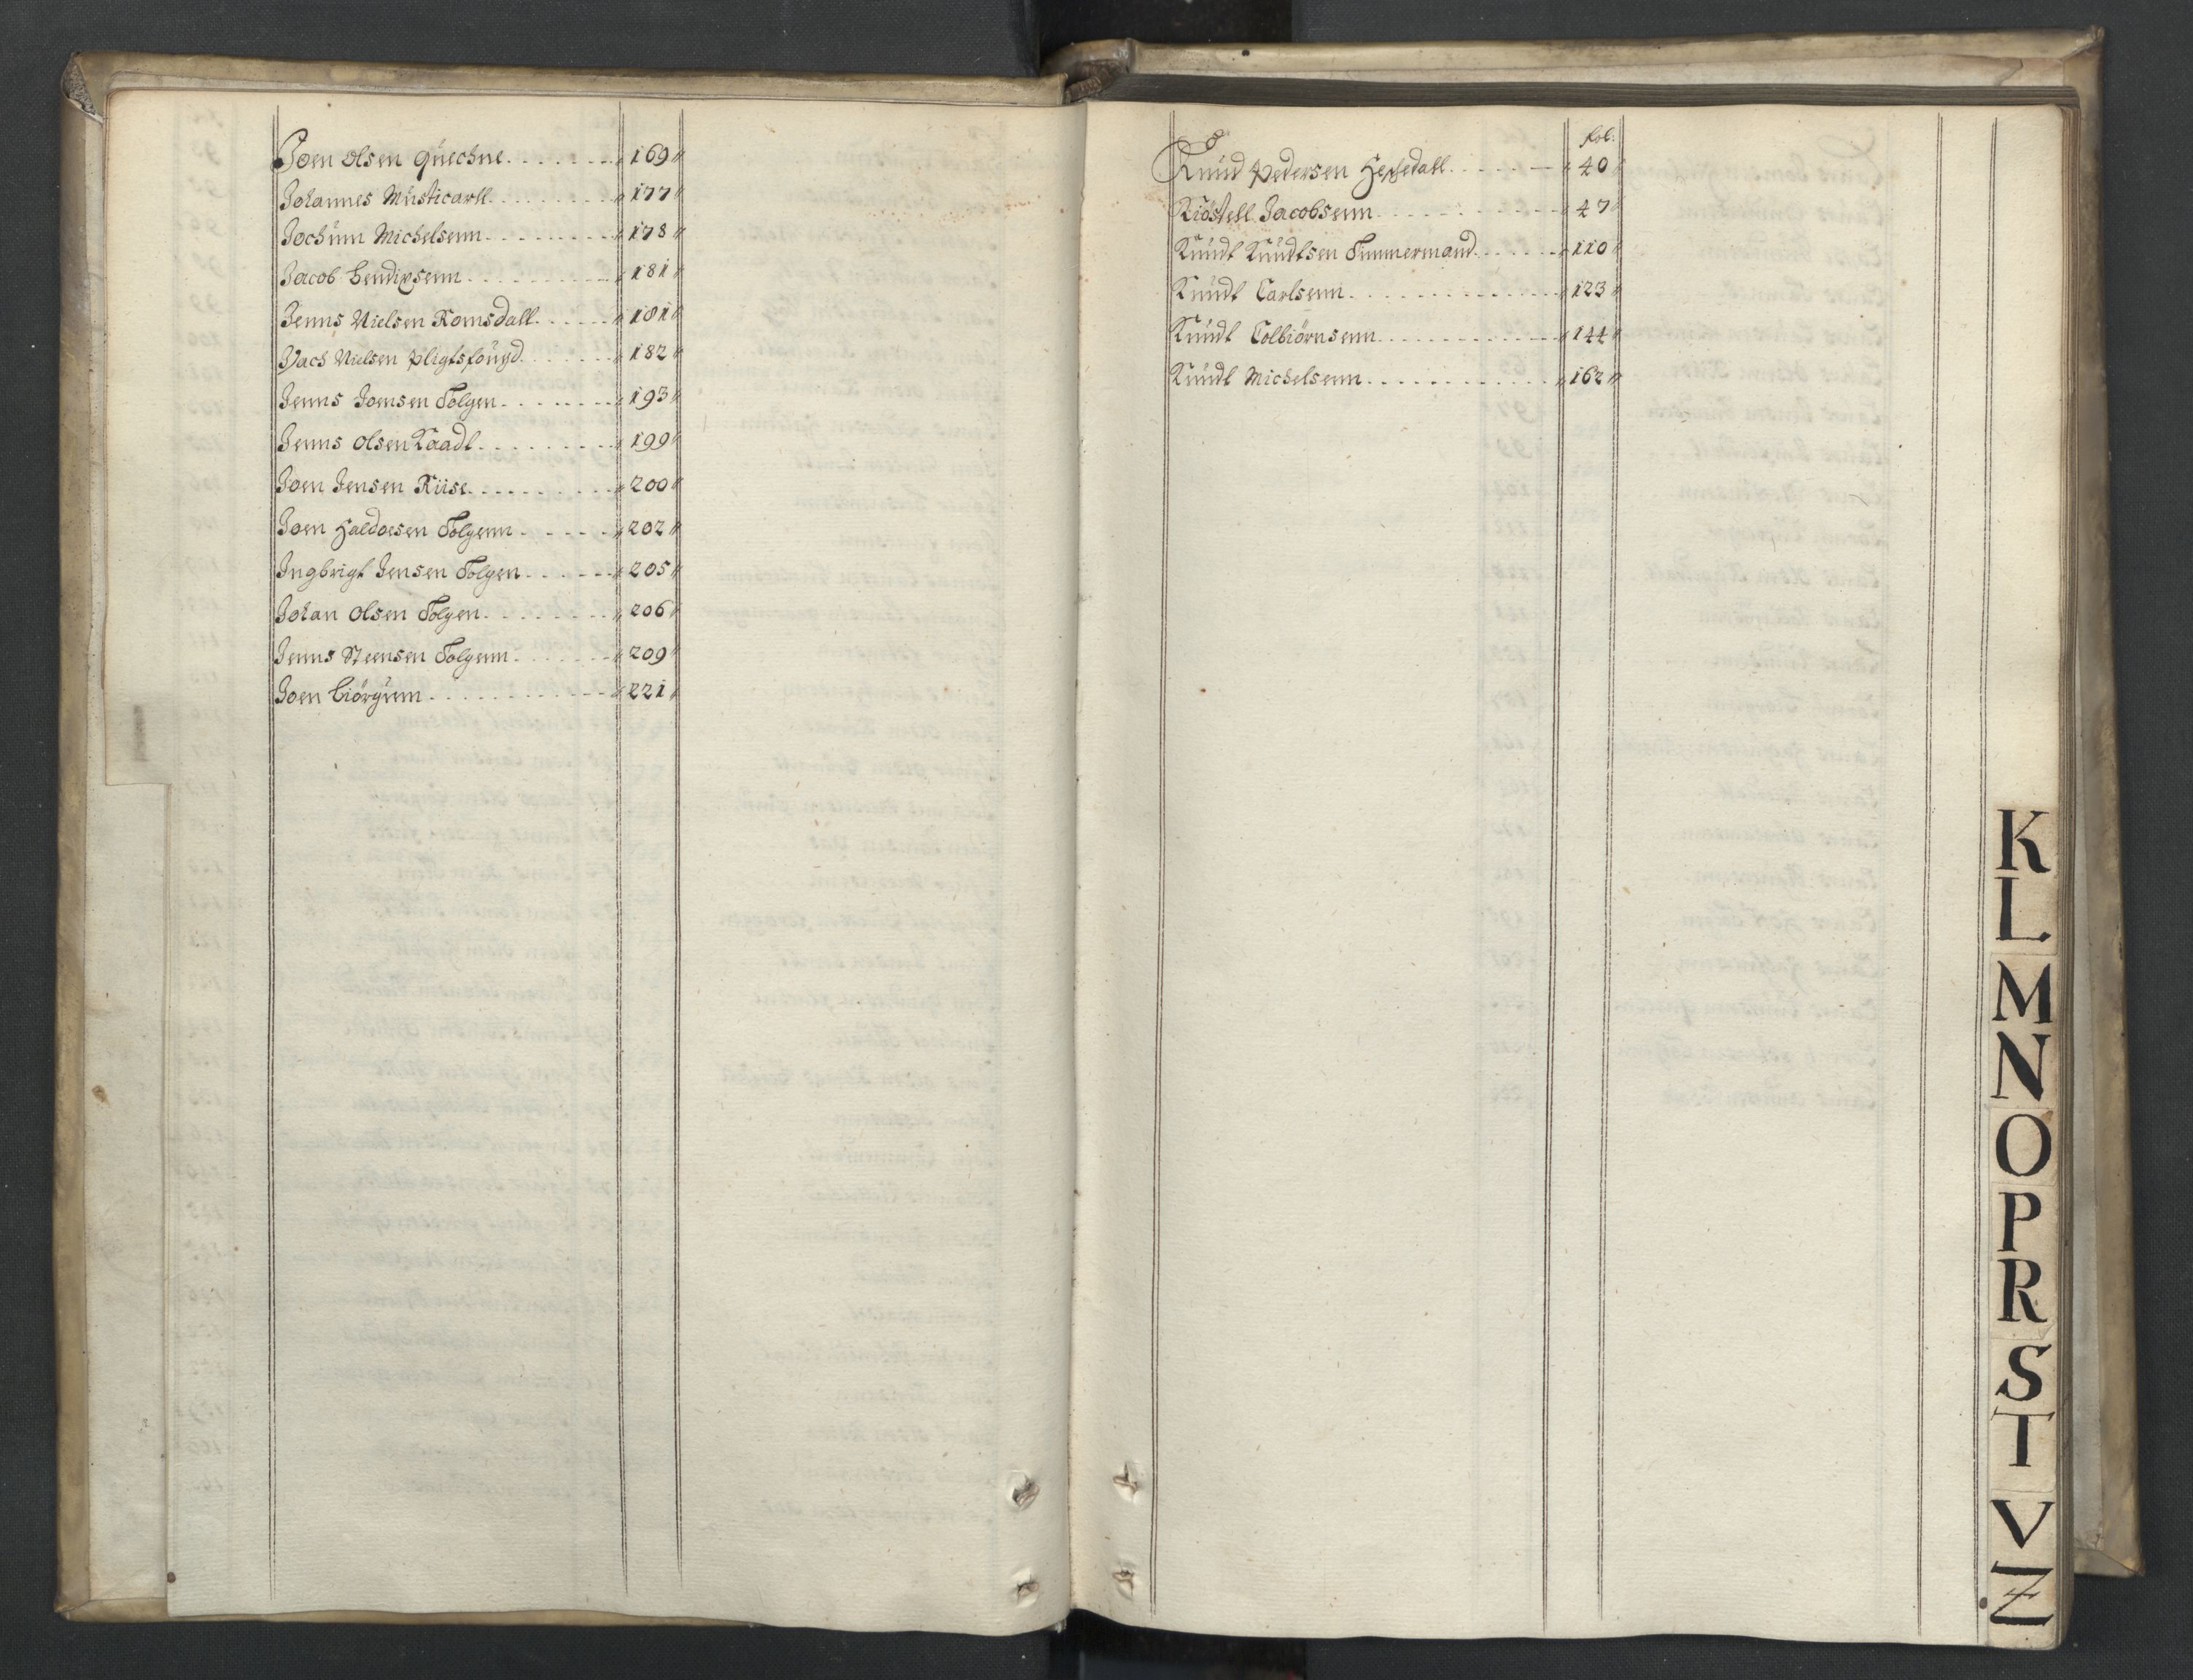 Joen Olsen Quechne 169
Johannes Musticarll 177
Jochum Michelsenn 178
Jacob Bendixsenn 181
Jenns Nielsen Romsdall 181
Isach Nielsen Pligtsfougd 182
Jenns Joensen Tolgen 193
Jenns Olsen Kaadt 199
Joen Jensen Riise 200
Joen Haldoesen Tolgenn 202
Ingbrigt Jensen Tolgen 205
Johan Olsen Tolgen 206
Jenns Steensen Tolgenn 209
Joen Biörgum 221
fol:
Knud Pedersen Hessedall 40
Kiöstell Jacobsenn 47
Knudt Knudtsen Timmermand 110
Knudt Carlsenn 123
Knudt Tolbiörnsenn 144
Knudt Michelsenn 162
K
L
M
N
O
P
R
S
T
V
Z